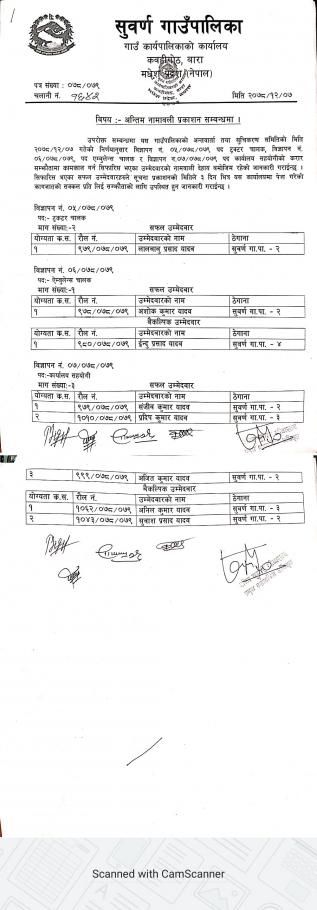 सुवर्ण गाउँपालिका
गाउँ कार्यपालिकाको कार्यालय
कवहीगोठ, बारा
मधेश प्रदेश (नेपाल)
पत्र संख्या : ०७८/०७९
चलानी नं. १६४२
मिति २०७८/१२/०७
विषय :- अन्तिम नामावली प्रकाशन सम्बन्धमा ।
उपरोक्त सम्बन्धमा यस गाउँपालिकाको अन्तर्वार्ता तथा सूचिकरण समितिको मिति
२०७८/१२/०७ गतेको निर्णयानुसार विज्ञापन नं. ०५/०७८/०७९ पद ट्रक्टर चालक, विज्ञापन नं.
०६/०७८/०७९ पद एम्बुलेन्स चालक र विज्ञापन नं.०७/०७८/०७९ पद कार्यालय सहयोगीको करार
सम्झौतामा कामकाज गर्न सिफारिस भएका उम्मेदवारको नामवाली देहाय बमोजिम रहेको जानकारी गराईन्छ ।
सिफारिस भएका सफल उम्मेदवारहरुले सूचना प्रकाशनको मितिले ३ दिन भित्र यस कार्यालयमा पेश गरेको
कागजातको सक्कल प्रति लिई सम्झौताको लागि उपस्थित हुन जानकारी गराईन्छ ।
विज्ञापन नं. ०५/०७८/०७९
पद:- ट्रक्टर चालक
माग संख्या:-२ सफल उम्मेदवार
योग्यता क.स. रौल नं. उम्मेदवारको नाम ठेगाना
१ ९७१/०७८/०७९ लालबाबु प्रसाद यादव सुवर्ण गा.पा. - २
विज्ञापन नं. ०६/०७८/०७९
पद:- एम्बुलेन्स चालक
माग संख्या:-१ सफल उम्मेदवार
योग्यता क.स. रौल नं. उम्मेदवारको नाम ठेगाना
१ ९७८/०७८/०७९ अशोक कुमार यादव सुवर्ण गा.पा. - २
बैकल्पिक उम्मेदवार
योग्यता क.स. रौल नं. उम्मेदवारको नाम ठेगाना
१ ९८०/०७८/०७९ ईन्दु प्रसाद यादव सुवर्ण गा.पा. - ४
विज्ञापन नं. ०७/०७८/०७९
पद:-कार्यालय सहयोगी
माग संख्या:-३ सफल उम्मेदवार
योग्यता क.स. रौल नं. उम्मेदवारको नाम ठेगाना
१ ९७९/०७८/०७९ संजीव कुमार यादव सुवर्ण गा.पा. - २
२ १०१०/०७८/०७९ प्रदिप कुमार यादव सुवर्ण गा.पा. - ३
३ ९९९/०७८/०७९ अजित कुमार यादव सुवर्ण गा.पा. - २
बैकल्पिक उम्मेदवार
योग्यता क.स. रौल नं. उम्मेदवारको नाम ठेगाना
१ १०६२/०७८/०७९ अनिस कुमार यादव सुवर्ण गा.पा. - ३
२ १०४३/०७८/०७९ सुवाश प्रसाद यादव सुवर्ण गा.पा. - २
Scanned with CamScanner